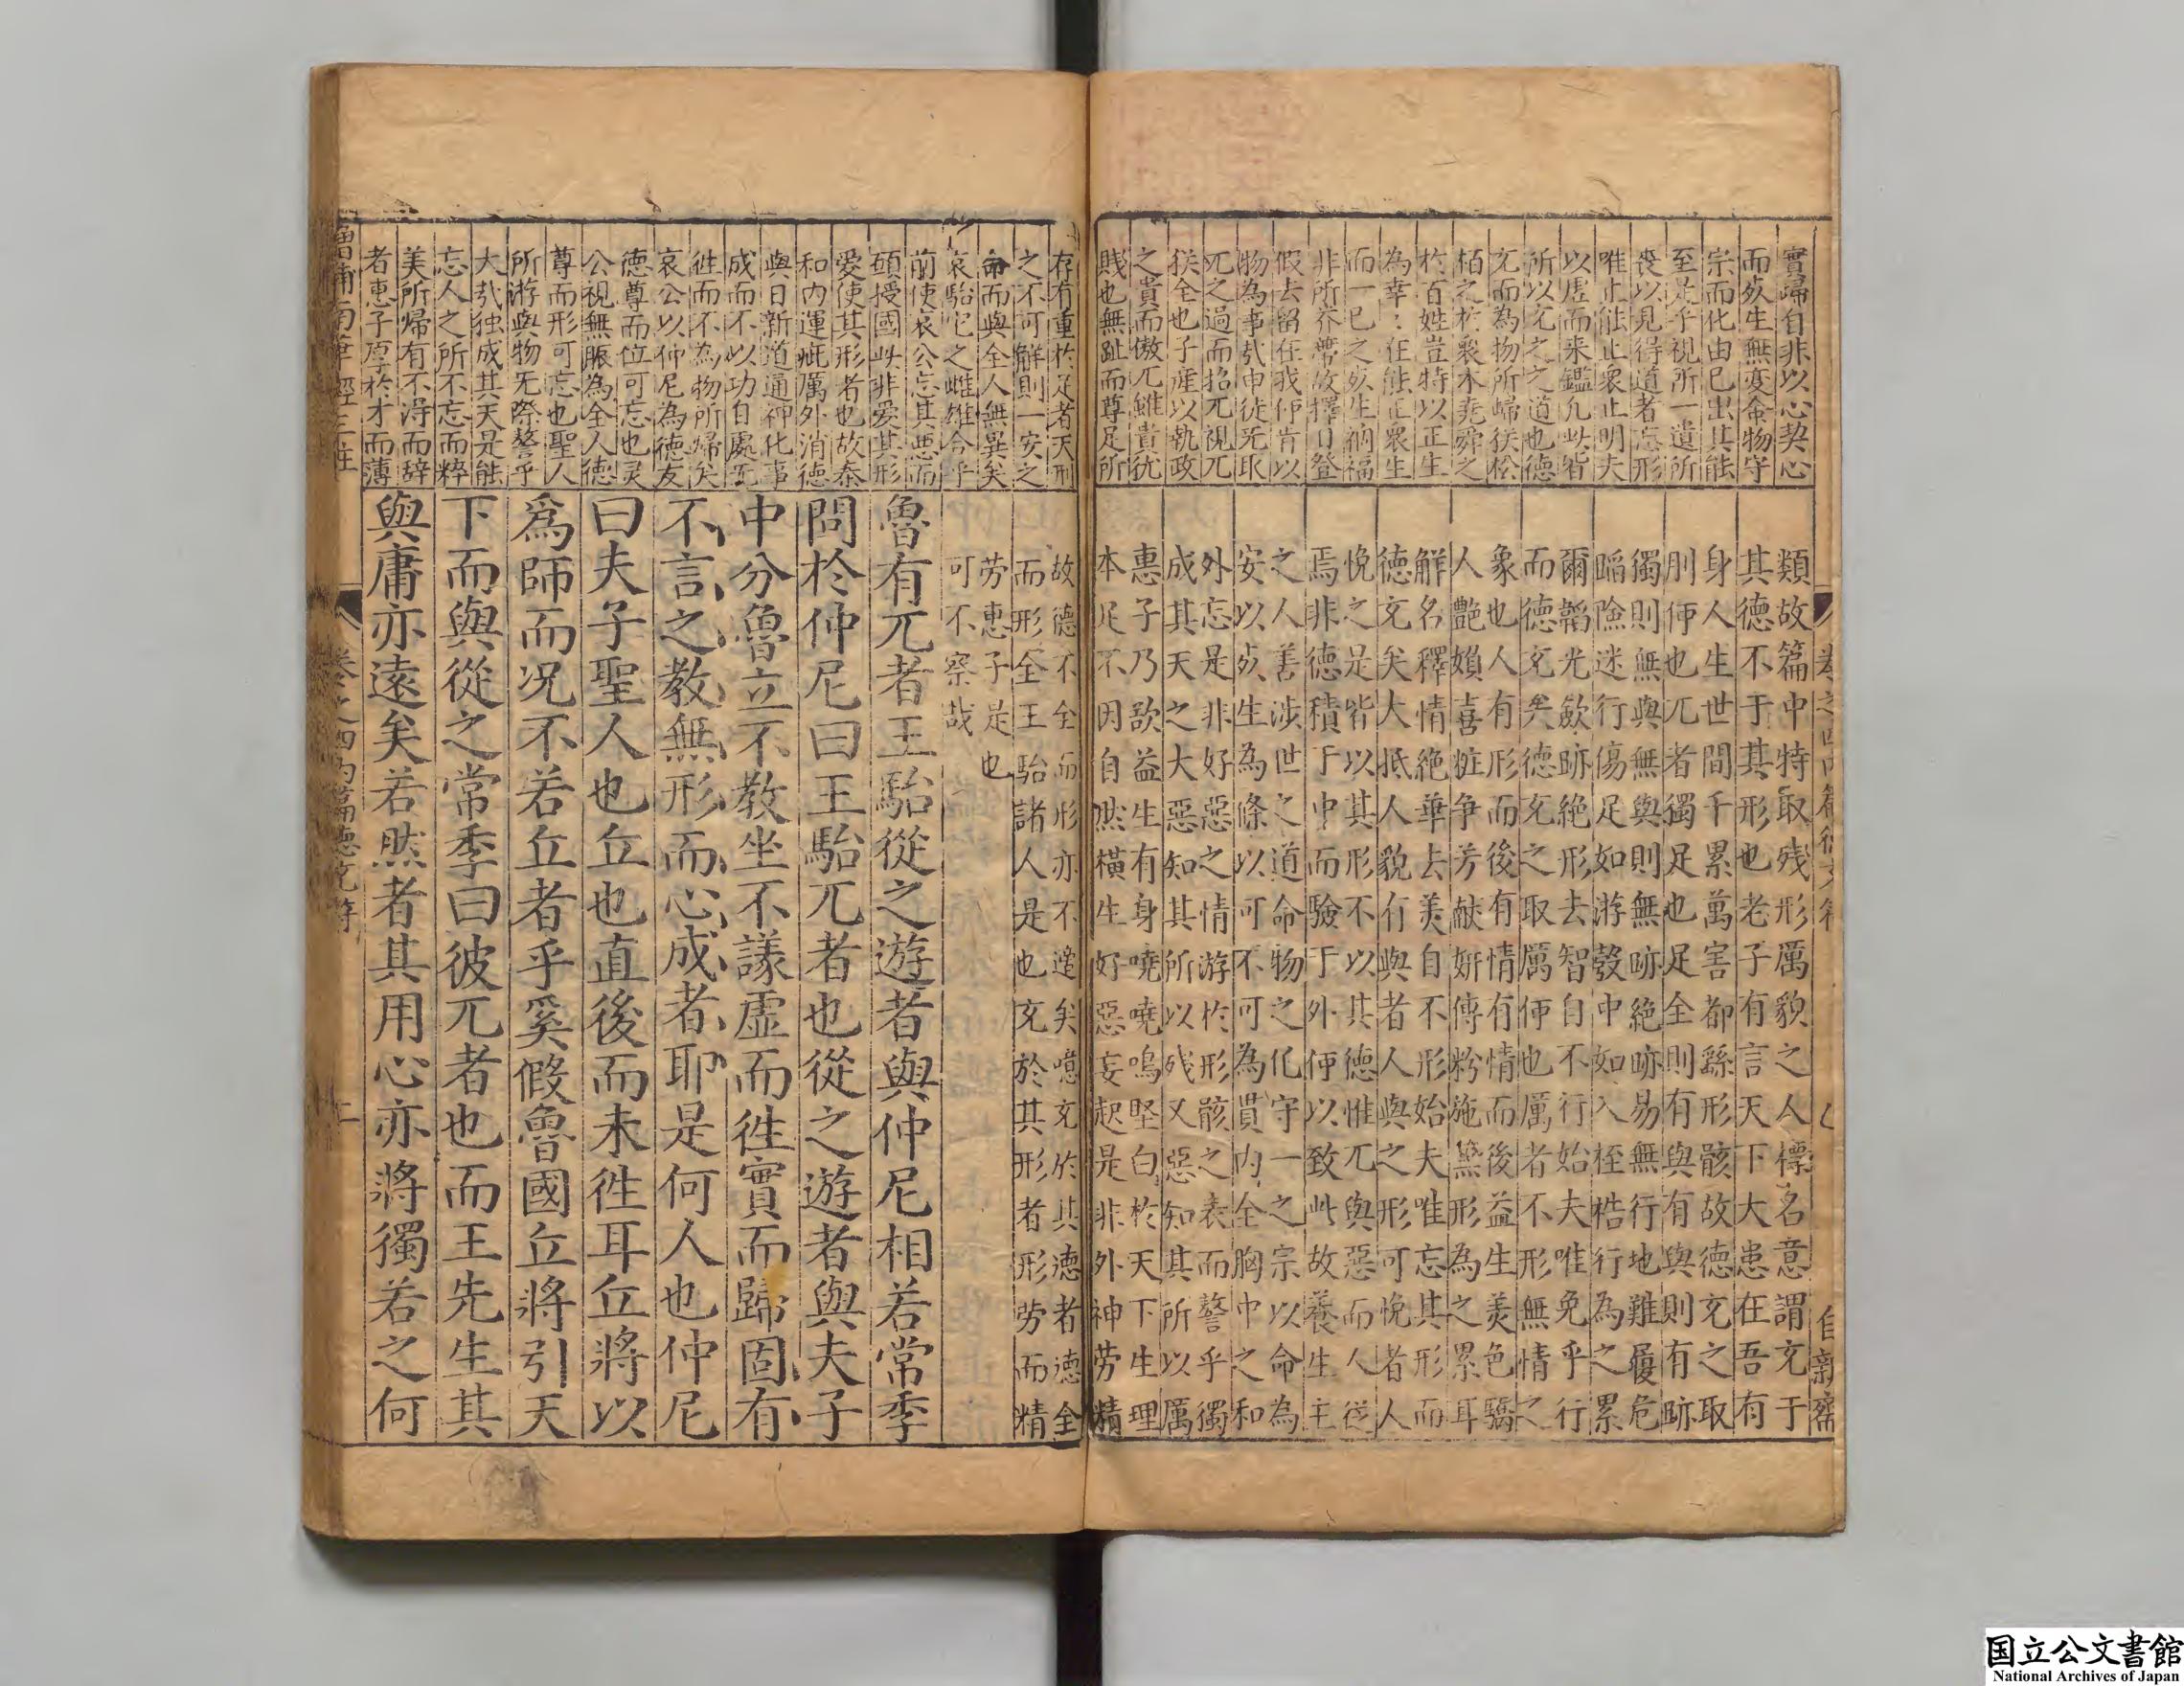 實歸自非以心契心
而死生無変命物守
宗而化由已出其能
至是乎視所一遺所
喪以見得道者忘形
唯止能止衆止明夫
以虚而来鑑凢此皆
所以充之之道也德
充而為物所歸猶松
栢之扵衆木堯舜之
扵百姓豈特以正生
為幸在能正衆生
而一已之死生禍福
非所芥蔕故擇日登
假去留在我仰肯以
物為事㢤申徒旡取
兀之過而招兀視兀
猶全也子産以執政
之貴而傲兀雖貴犹
賤也無趾而尊足所
類故篇中特取残形厲貌之人標名意謂充于
其德不于其形也老子有言天下大患在吾有
身人生世間千累萬害都繇形骸故德充之取
刖何也兀者獨足也足全則有與有與則有跡
獨則無與無與則無跡絶跡易無行地難履危
蹈險迷行傷足如游彀中如入桎梏行為之累
爾韜光歛跡絶形去智自不行始夫唯免乎行
而德充矣德充之取厲何也厲者不形無情之
象也人有形而後有情有情而後益生美色驕
人艷媍喜粧争芳献妍傅粉施黛形為之累耳
觧名釋情絶華去美自不形始夫唯忘其形而
德充矣大抵人貌有與者人與之形可悅者人
悅之是皆以其形不以其德惟兀與惡而人従
焉非德積于中而驗于外何以致此故養生主
之人善涉世之道命物之化守一之宗以命為
安以死生為條以可不可為貫内全胸中之和
外忘是非好惡之情游扵形骸之表而謷乎獨
成其天之大惡知其所以残又惡知其所以厲
惠子乃欲益生有身嘵嘵鳴堅白扵天下生理
本足不因自然横生好惡妄起是非外神勞精
存有重扵足者天刑
之不可觧則一安之
命而與全人無異矣
哀駘它之雌雄合乎
前使哀公忘其惡而
頤授國此非愛其形
愛使其形者也故泰
和内運疵厲外消德
與日新道通神化事
成而不以功自處旡
徃而不為物所歸矣
哀公以仲尼為德友
德尊而位可忘也灵
公視無脤為全人德
尊而形可忘也聖人
所游與物无際謷乎
大㢤独成其天是能
忘人之所不忘而粹
美所歸有不淂而辞
者惠子厚扵才而薄
故德不全而形亦不逮矣噫充於其德者德全
而形全王駘諸人是也充於其形者形勞而精
劳惠子是也
可不察哉
魯有兀者王駘從之遊者與仲尼相若常季
問扵仲尼曰王駘兀者也從之遊者與夫子
中分魯立不教坐不議虚而徃實而歸固有
不言之教無形而心成者耶是何人也仲尼
曰夫子聖人也丘也直後而未徃耳丘將以
爲師而况不若丘者乎奚假魯國丘將引天
下而與從之常季曰彼兀者也而王先生其
與庸亦遠矣若然者其用心亦將獨若之何
卷之四内篇德充符
二
国立公文書館
National Archives of Japan